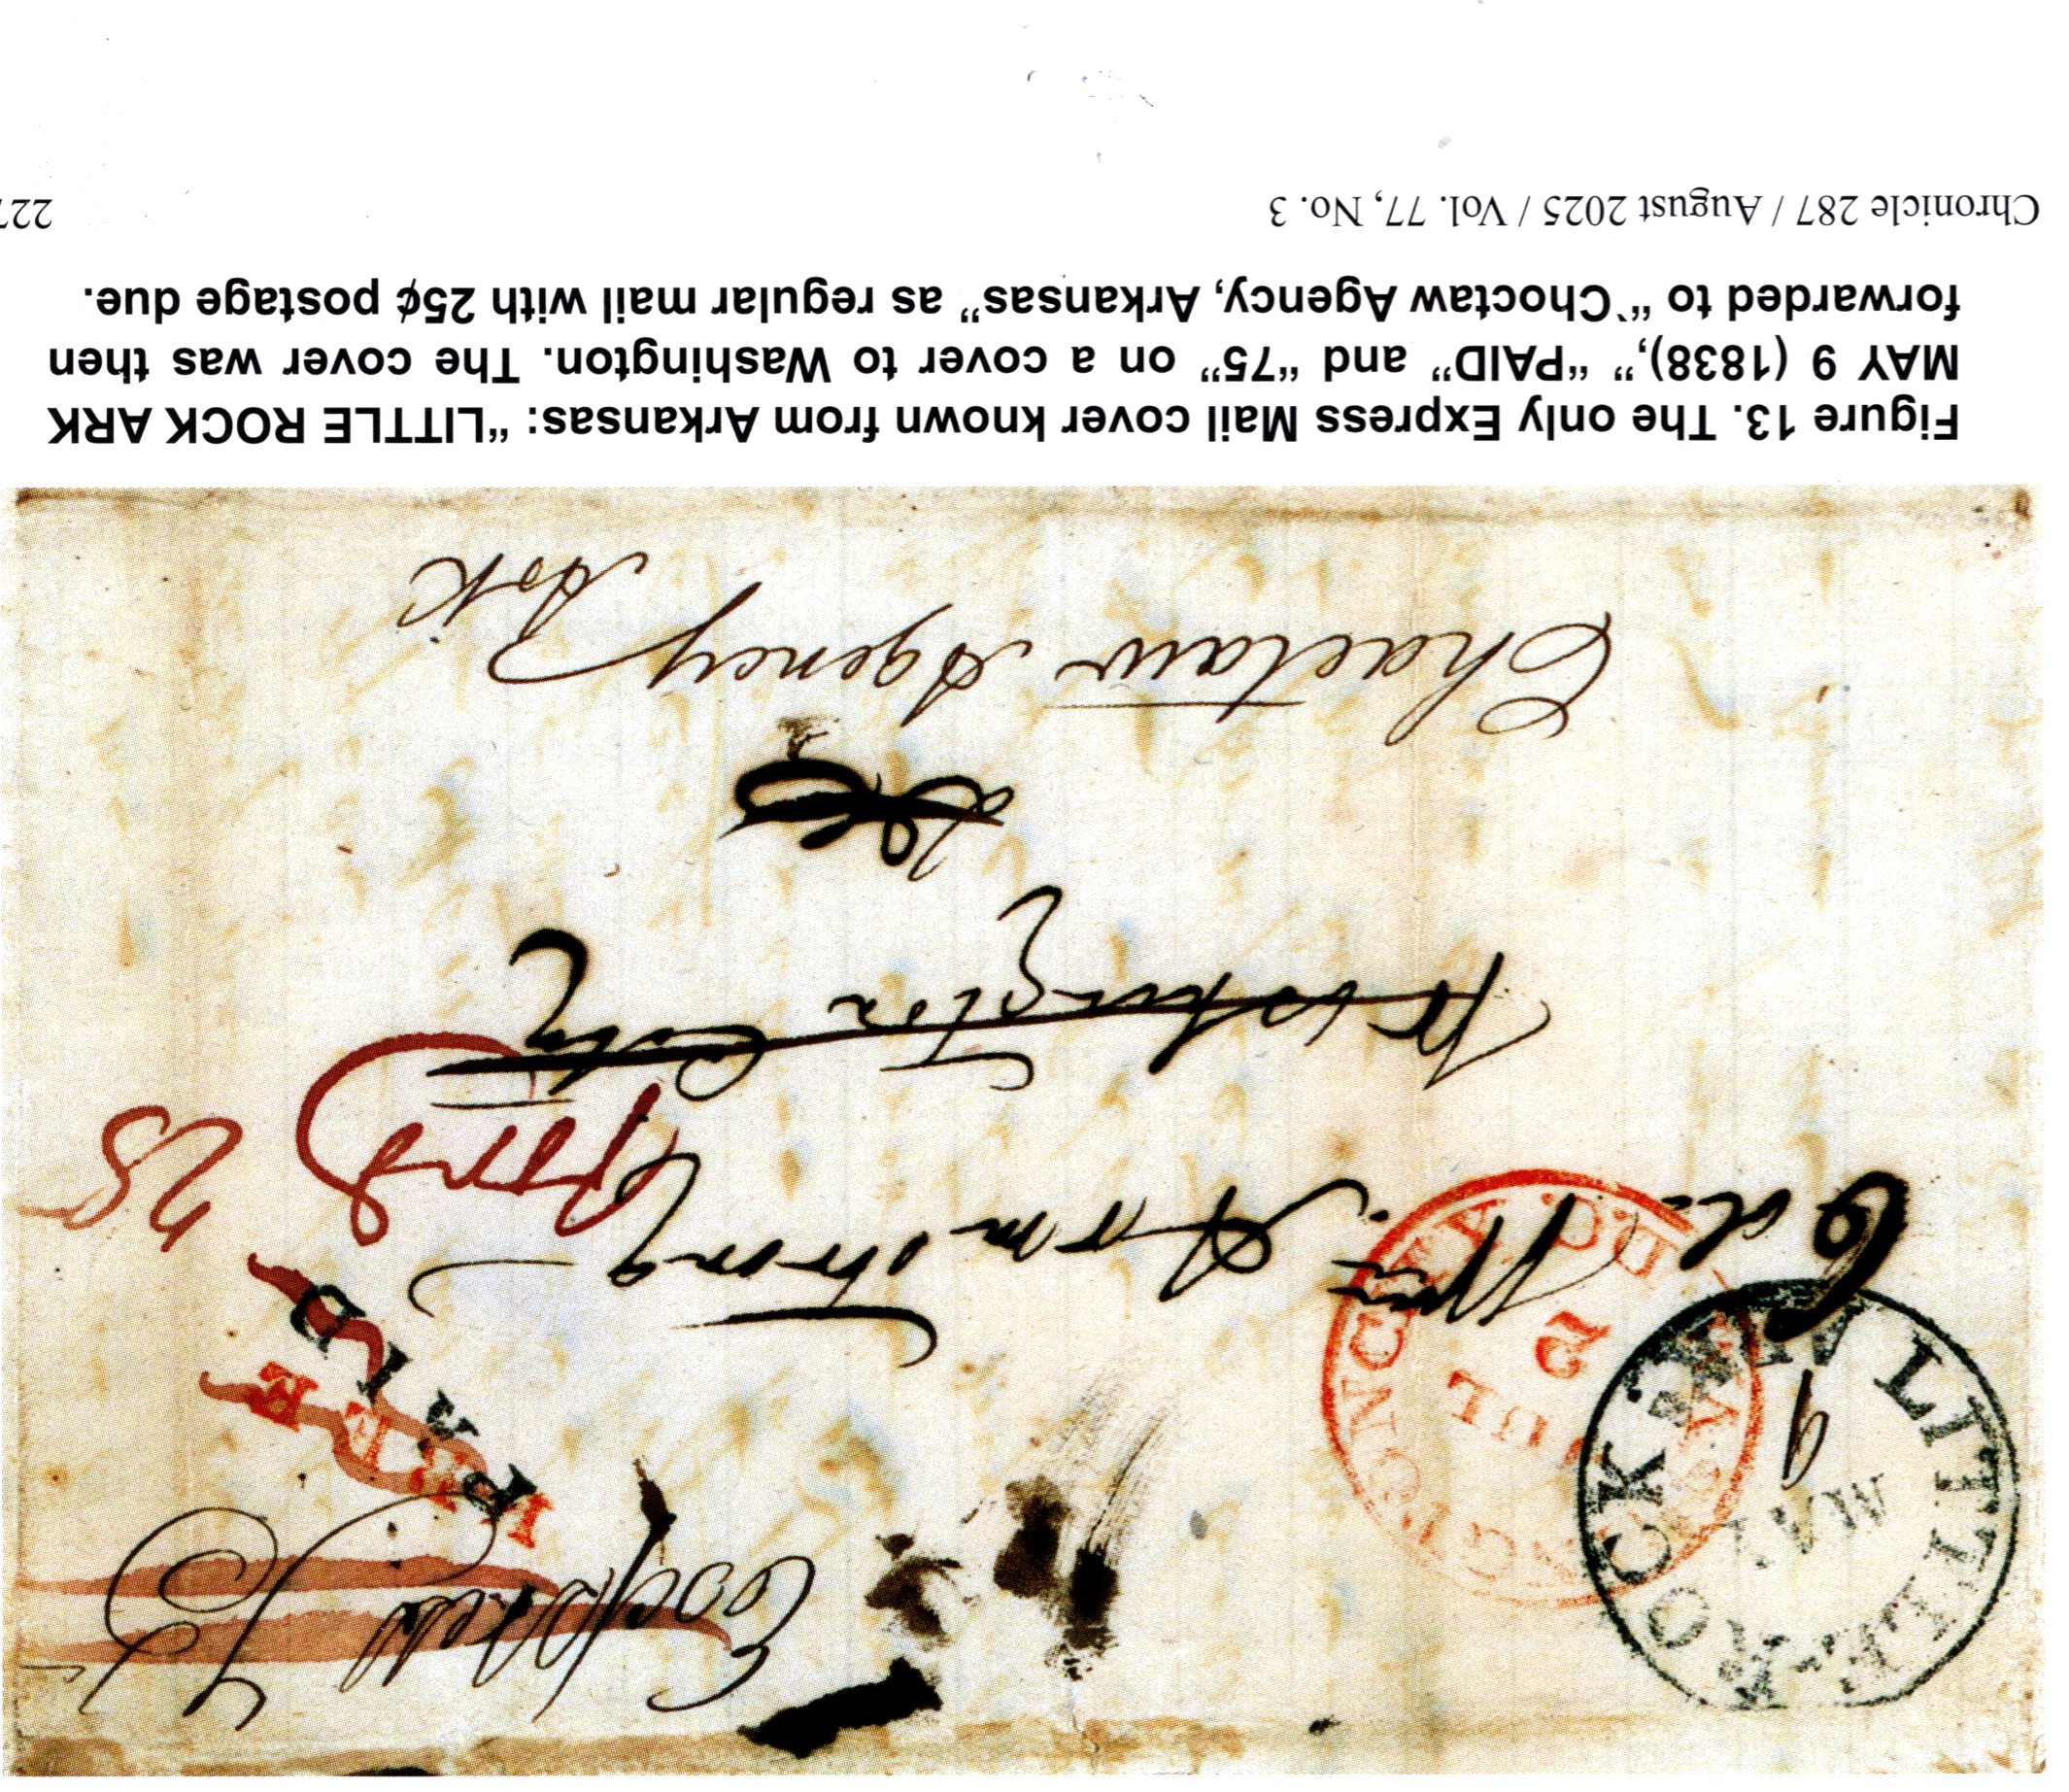 Express Mail
LITTLE ROCK ARK
MAY
9
WASHINGTON CITY D.C.
2
PAID
FREE
Col. Wm Armstrong
forwd
25
Washington City
Choctaw Agency
Ark
Figure 13. The only Express Mail cover known from Arkansas: “LITTLE ROCK ARK
MAY 9 (1838),” “PAID” and “75” on a cover to Washington. The cover was then
forwarded to “`Choctaw Agency, Arkansas” as regular mail with 25¢ postage due.
Chronicle 287 / August 2025 / Vol. 77, No. 3
227